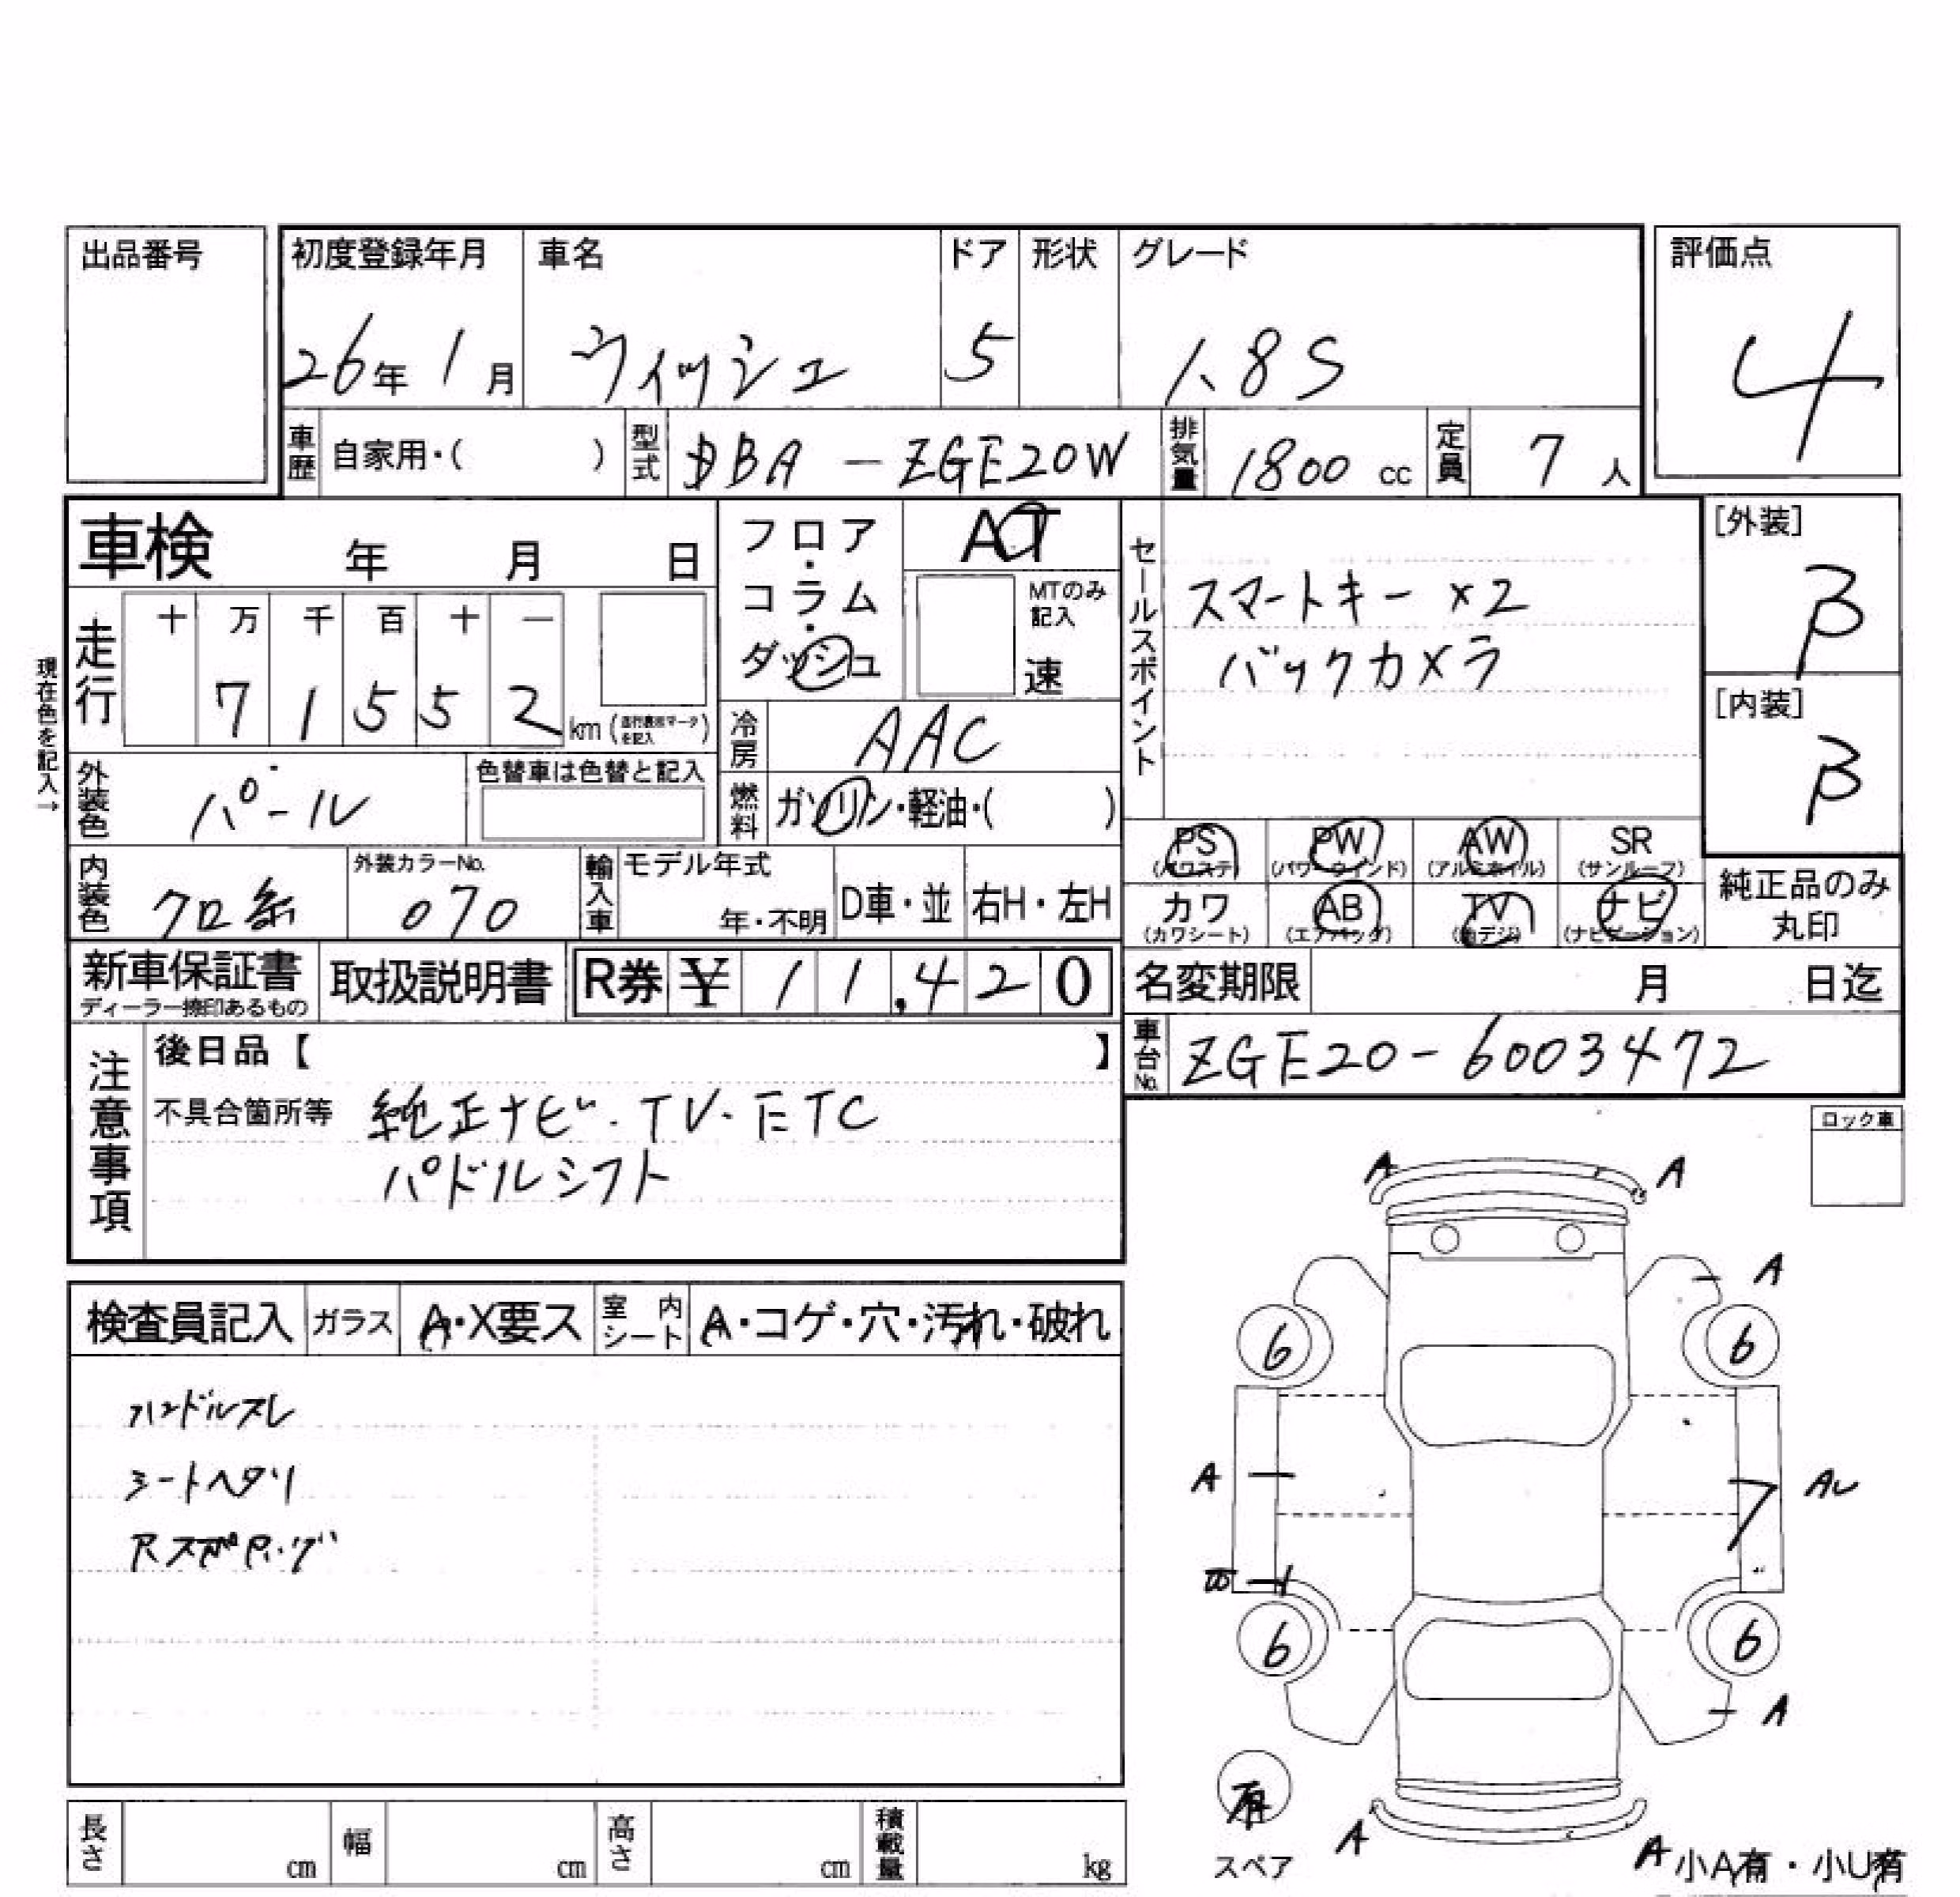 出品番号
初度登録年月 車名 ドア 形状 グレード 評価点
26年 1月 ウィッシュ 5 1.8S 4
車歴 自家用・( ) 型式 DBA-ZGE20W 排気量 1800 cc 定員 7 人
車検 年 月 日
フロア・コラム・ダッシュ
AT
MTのみ記入
速
セールスポイント
スマートキー ×2
バックカメラ
[外装]
B
[内装]
B
現在色を記入→
走行 十 万 千 百 十 一
7 1 5 5 2 km (走行表示マークを記入)
冷房 AAC
外装色 パール
色替車は色替と記入
燃料 ガソリン・軽油・( )
PS (パワステ) PW (パワーウインド) AW (アルミホイル) SR (サンルーフ)
カワ (カワシート) AB (エアバッグ) TV (地デジ) ナビ (ナビゲーション)
純正品のみ
丸印
内装色 クロ系
外装カラーNo.
070
輸入車 モデル年式
年・不明 D車・並 右H・左H
新車保証書
ディーラー捺印あるもの
取扱説明書
R券 ¥ 11,420
名変期限 月 日迄
車台No. ZGE20-6003472
注意事項
後日品【 】
不具合箇所等 純正ナビ・TV・ETC
パドルシフト
ロック車
検査員記入 ガラス A・X要ス 室内シート A・コゲ・穴・汚れ・破れ
ハンドルスレ
シートヘタリ
A A
A
6 6
A AU
6 6
A
有
スペア
A
A 小A有・小U有
長さ cm 幅 cm 高さ cm 積載量 kg